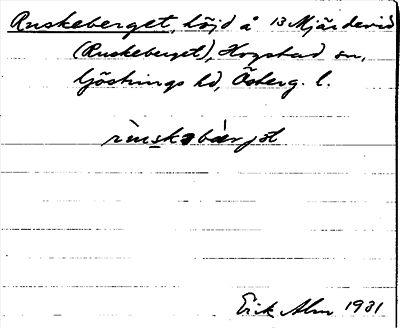 Ruskeberget, höjd å 13 Mjärdevid
(Ruskeberget), Hogstad sn,
Göstrings hd, Österg. l.
rùskəbær̀jət
Erik Alm 1931